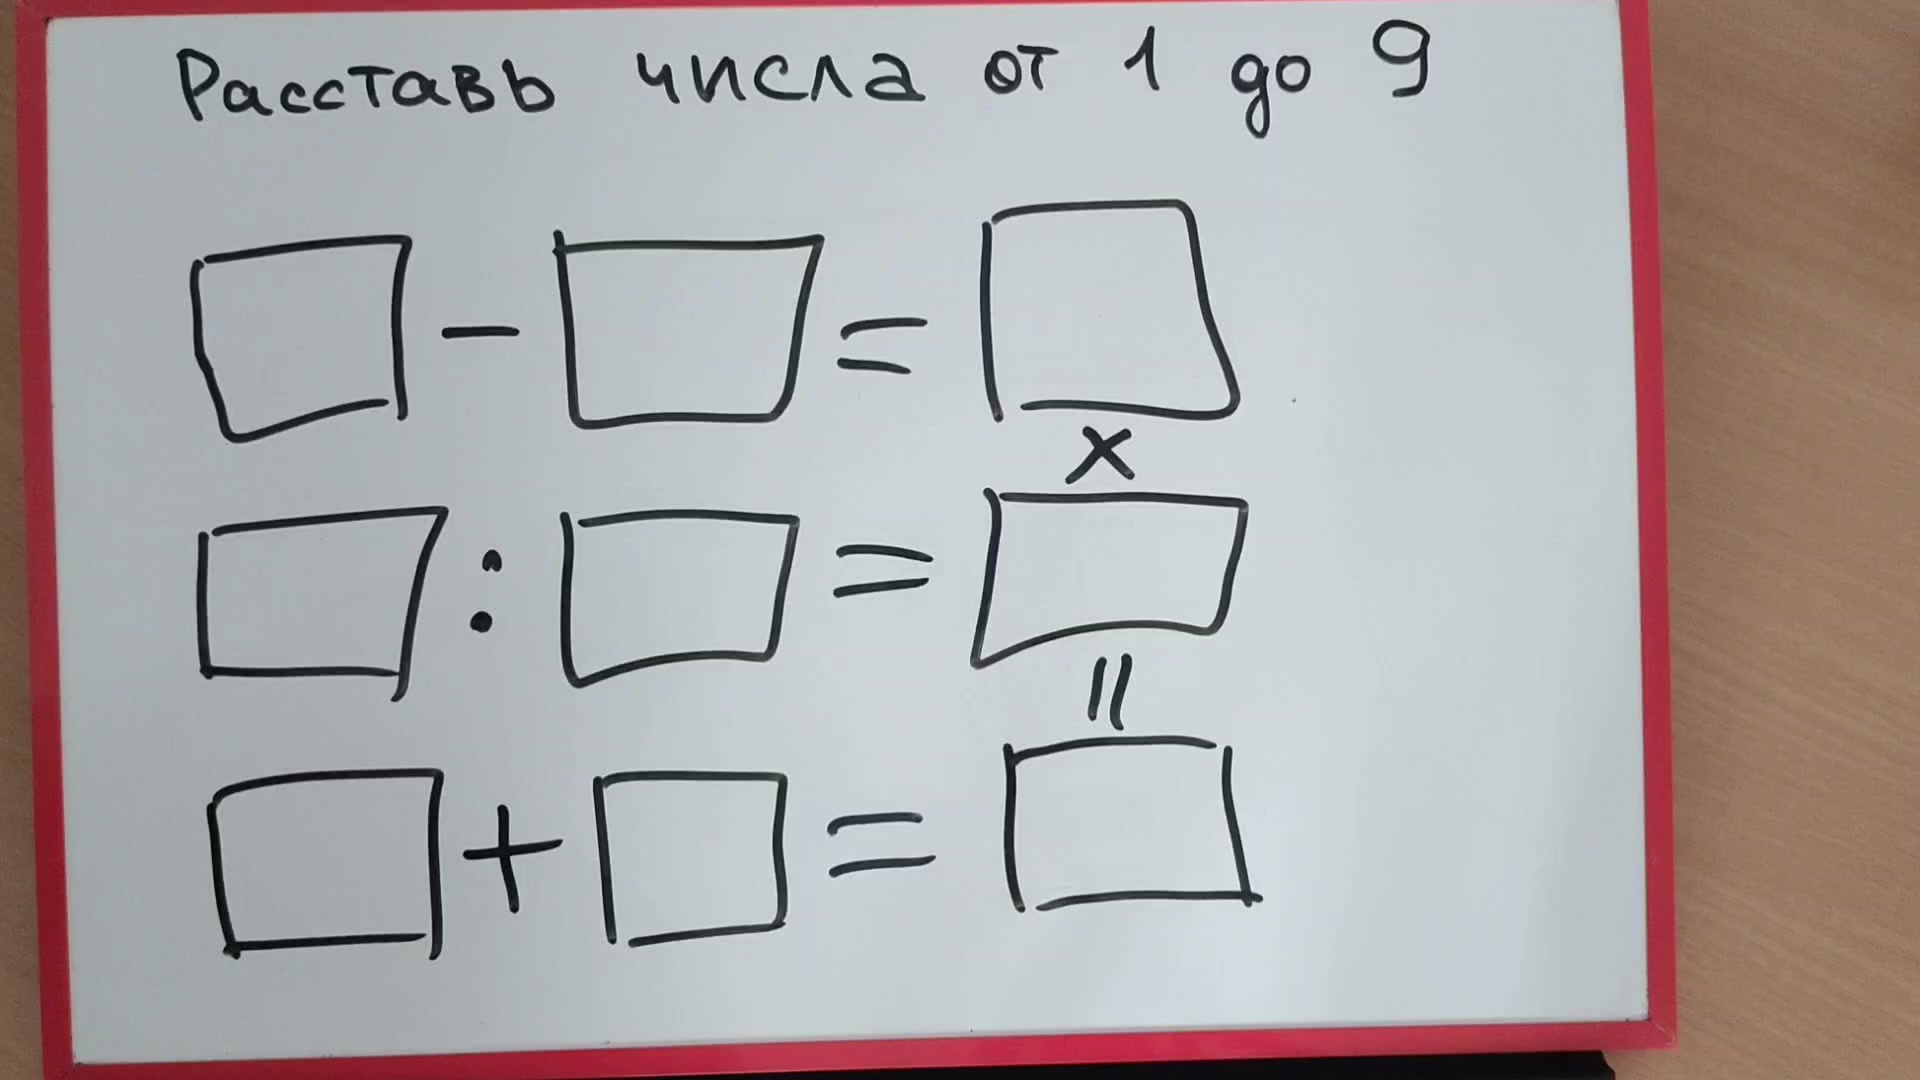 Расставь числа от 1 до 9
□ - □ = □
×
□ : □ = □
=
□ + □ = □